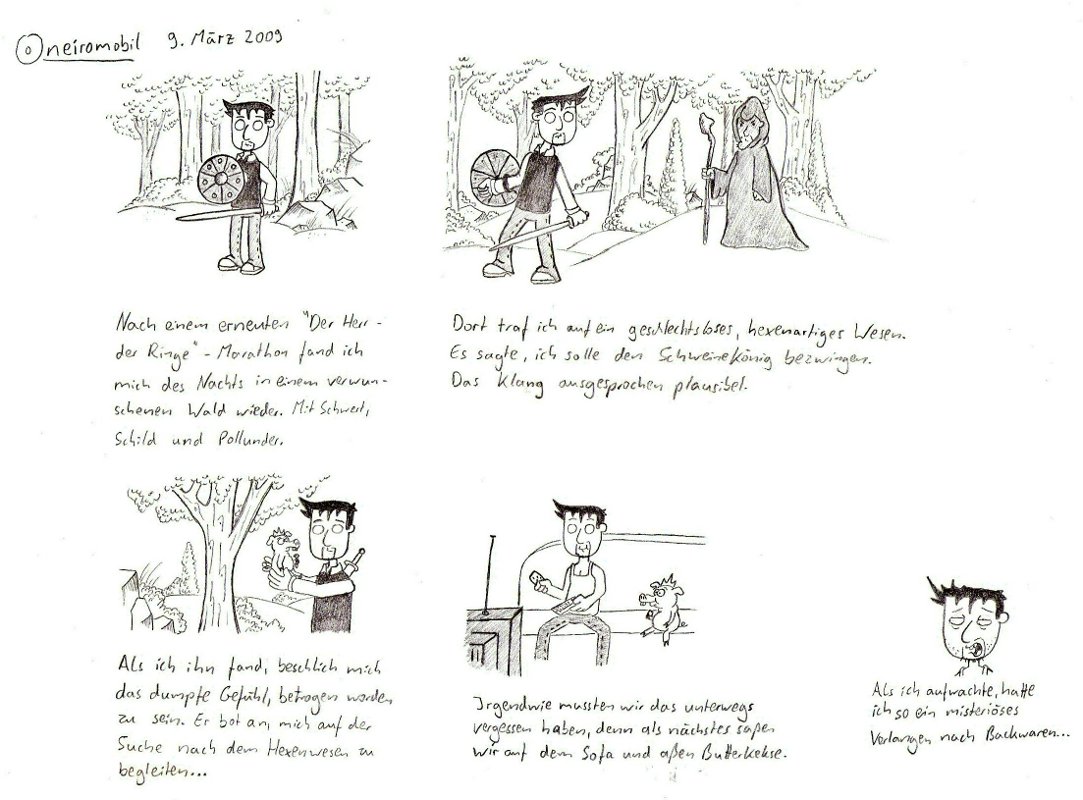 Oneiromobil 9. März 2009
Nach einem erneuten "Der Herr-
der Ringe"-Marathon fand ich
mich des Nachts in einem verwun-
schenen Wald wieder. Mit Schwert,
Schild und Pollunder.
Dort traf ich auf ein geschlechtsloses, hexenartiges Wesen.
Es sagte, ich solle den Schweinekönig bezwingen.
Das klang ausgesprochen plausibel.
Als ich ihn fand, beschlich mich
das dumpfe Gefühl, betrogen worden
zu sein. Er bot an, mich auf der
Suche nach dem Hexenwesen zu
begleiten...
Irgendwie mussten wir das unterwegs
vergessen haben, denn als nächstes saßen
wir auf dem Sofa und aßen Butterkekse.
Als ich aufwachte, hatte
ich so ein misteriöses
Verlangen nach Backwaren...